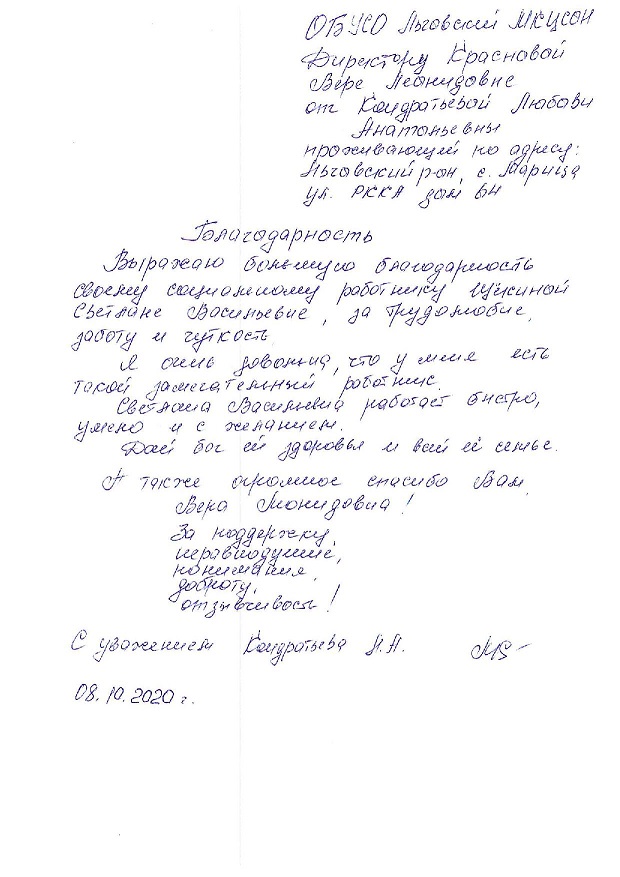 ОБУСО Льговский МКЦСОН
Директору Красновой
Вере Леонидовне
от Кондратьевой Любови
Анатольевны
проживающей по адресу:
Льговский р-он, с. Марица
ул. РККА дом 64
Благодарность
Выражаю большую благодарность
своему социальному работнику Щукиной
Светлане Васильевне, за трудолюбие,
заботу и чуткость.
Я очень довольна, что у меня есть
такой замечательный работник.
Светлана Васильевна работает быстро,
умело и с желанием.
Дай бог ей здоровья и всей её семье.
А также огромное спасибо Вам,
Вера Леонидовна!
За поддержку,
неравнодушие,
понимания,
доброту,
отзывчивость!
С уважением Кондратьева Л.А.
08.10.2020 г.